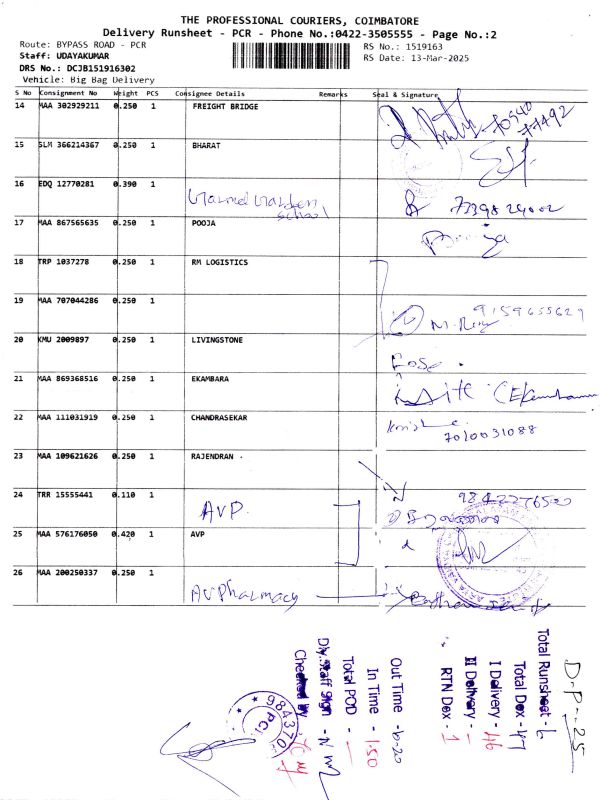 THE PROFESSIONAL COURIERS, COIMBATORE
Delivery Runsheet - PCR - Phone No.:0422-3505555 - Page No.:2
Route: BYPASS ROAD - PCR
RS No.: 1519163
Staff: UDAYAKUMAR
RS Date: 13-Mar-2025
DRS No.: DCJB151916302
Vehicle: Big Bag Delivery
S No Consignment No Weight PCS Consignee Details Remarks Seal & Signature
14 MAA 302929211 0.250 1 FREIGHT BRIDGE
70540
77492
15 SLM 366214367 0.250 1 BHARAT
16 EDQ 12770281 0.390 1
Garden
School
7339829002
17 MAA 867565635 0.250 1 POOJA
Pooja
18 TRP 1037278 0.250 1 RM LOGISTICS
19 MAA 707044286 0.250 1
9159655629
20 KMU 2009897 0.250 1 LIVINGSTONE
Rose
21 MAA 869368516 0.250 1 EKAMBARA
22 MAA 111031919 0.250 1 CHANDRASEKAR
7010031088
23 MAA 109621626 0.250 1 RAJENDRAN
24 TRR 15555441 0.110 1 AVP
9842276520
25 MAA 576176050 0.420 1 AVP
26 MAA 200250337 0.250 1 AVPharmacy
D.Pr-25
Total Runsheet - 6
Total Dox - 47
I Delivery - 46
II Delivery -
RTN Dox - 1
Out Time - 6.20
In Time - 1.50
Total POD -
Dly.Staff Sign -
Checked by -
984370
PCR